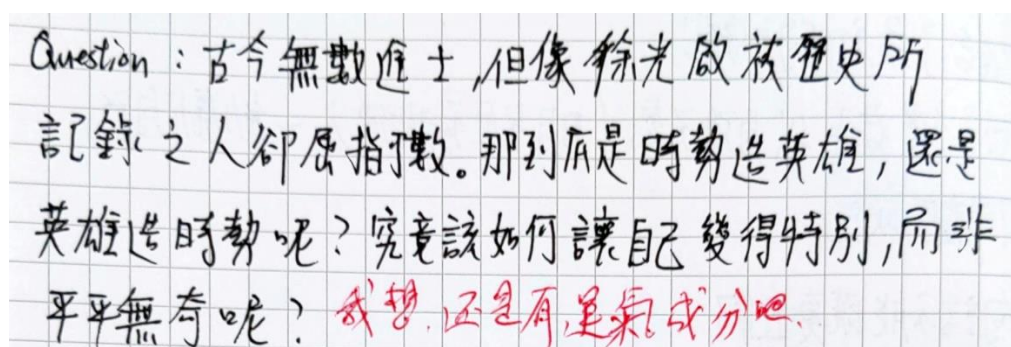 Question：古今無數進士,但像徐光啟被歷史所
記錄之人卻屈指可數。那到底是時勢造英雄,還是
英雄造時勢呢?究竟該如何讓自己變得特別,而非
平平無奇呢?我想,还是有運氣成分吧.